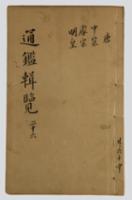 唐
中宗
睿宗
明皇
通鑑輯覽
二十六